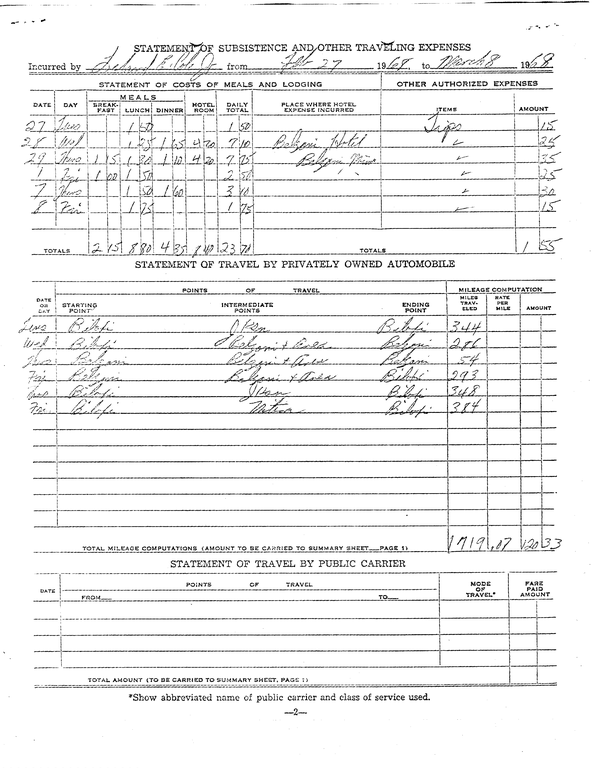 STATEMENT OF SUBSISTENCE AND OTHER TRAVELING EXPENSES
Incurred by from Feb 27 1968 to March 8 1968
STATEMENT OF COSTS OF MEALS AND LODGING OTHER AUTHORIZED EXPENSES
MEALS
DATE DAY BREAK-FAST LUNCH DINNER HOTEL ROOM DAILY TOTAL PLACE WHERE HOTEL EXPENSE INCURRED ITEMS AMOUNT
27 Tues 1 50 1 50 Tips 15
28 Wed 1 25 1 65 4 20 7 10 Hotel 25
29 Thurs 1 15 1 30 1 10 4 20 7 75 35
1 Fri 1 00 1 50 2 50 25
7 Thurs 1 50 1 60 3 10 30
8 Fri 1 75 1 75 15
TOTALS 2 15 8 80 4 35 8 40 23 70 TOTALS 1 55
STATEMENT OF TRAVEL BY PRIVATELY OWNED AUTOMOBILE
POINTS OF TRAVEL MILEAGE COMPUTATION
DATE OR DAY STARTING POINT INTERMEDIATE POINTS ENDING POINT MILES TRAV-ELED RATE PER MILE AMOUNT
Tues Biloxi Biloxi 344
Wed Biloxi + area 286
Thurs + area 54
Fri + area Biloxi 293
Biloxi Biloxi 348
Fri Biloxi Biloxi 384
TOTAL MILEAGE COMPUTATIONS (AMOUNT TO BE CARRIED TO SUMMARY SHEET PAGE 1) 1719 .07 120 33
STATEMENT OF TRAVEL BY PUBLIC CARRIER
DATE POINTS OF TRAVEL MODE OF TRAVEL* FARE PAID AMOUNT
FROM TO
TOTAL AMOUNT (TO BE CARRIED TO SUMMARY SHEET, PAGE 1)
*Show abbreviated name of public carrier and class of service used.
—2—